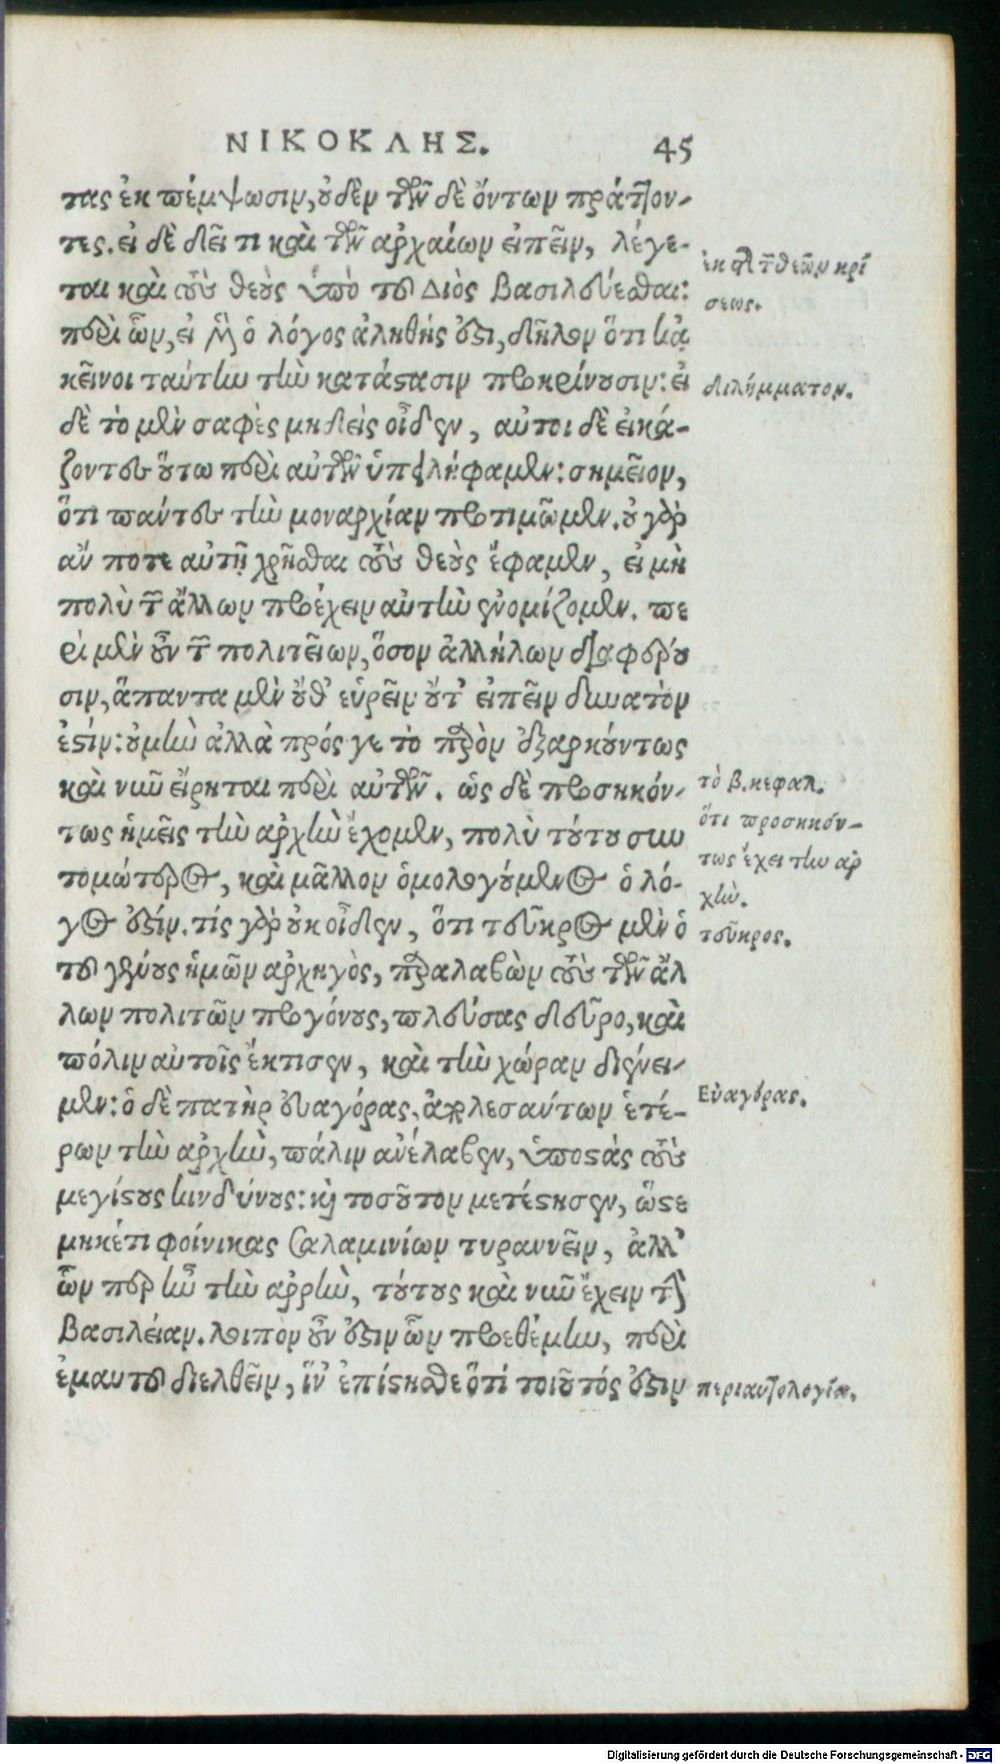 ΝΙΚΟΚΛΗΣ. 45
τας ἐκπέμψωσιν, οὐδὲν τῶν δεόντων πράττον-
τες. εἰ δὲ δεῖ τι καὶ τῶν ἀρχαίων εἰπεῖν, λέγε-
ται καὶ τοὺς θεοὺς ὑπὸ τοῦ Διὸς βασιλεύεσθαι:
περὶ ὧν, εἰ μὲν ὁ λόγος ἀληθής ἐστι, δῆλον ὅτι κἀ
κεῖνοι ταύτην τὴν κατάστασιν προκρίνουσιν: εἰ
δὲ τὸ μὲν σαφὲς μηδεὶς οἶδεν, αὐτοὶ δὲ εἰκά-
ζοντες οὕτω περὶ αὐτῶν ὑπειλήφαμεν: σημεῖον,
ὅτι πάντες τὴν μοναρχίαν προτιμῶμεν. οὐ γὰρ
ἄν ποτε αὐτῇ χρῆσθαι τοὺς θεοὺς ἔφαμεν, εἰ μὴ
πολὺ τῶν ἄλλων προέχειν αὐτὴν ἐνομίζομεν. πε
ρὶ μὲν οὖν τῶν πολιτειῶν, ὅσον ἀλλήλων διαφέρου
σιν, ἅπαντα μὲν οὔθ' εὑρεῖν οὔτ' εἰπεῖν δυνατὸν
ἐστίν: οὐ μὴν ἀλλὰ πρός γε τὸ παρὸν ἐξαρκούντως
καὶ νῦν εἴρηται περὶ αὐτῶν. ὡς δὲ προσηκόν-
τως ἡμεῖς τὴν ἀρχὴν ἔχομεν, πολὺ τούτου συν
τομώτερος, καὶ μᾶλλον ὁμολογούμενος ὁ λό-
γος ἐστίν. τίς γὰρ οὐκ οἶδεν, ὅτι τεῦκρος μὲν ὁ
τοῦ γένους ἡμῶν ἀρχηγὸς, παραλαβὼν τοὺς τῶν ἄλ
λων πολιτῶν προγόνους, πλεύσας δεῦρο, καὶ
πόλιν αὐτοῖς ἔκτισεν, καὶ τὴν χώραν διένει-
μεν: ὁ δὲ πατὴρ εὐαγόρας, ἀπολεσάντων ἑτέ-
ρων τὴν ἀρχὴν, πάλιν ἀνέλαβεν, ὑποστὰς τοὺς
μεγίστους κινδύνους: καὶ τοσοῦτον μετέστησεν, ὥστε
μηκέτι φοίνικας Σαλαμινίων τυραννεῖν, ἀλλ'
ὧν περ ἦν τὴν ἀρχὴν, τούτους καὶ νῦν ἔχειν τὴν
βασιλείαν. λοιπὸν οὖν ἐστιν ὧν προεθέμην, περὶ
ἐμαυτοῦ διελθεῖν, ἵν' ἐπίστησθε ὅτι τοιοῦτός ἐστιν
ἐκ τῆς τῶν θεῶν κρί
σεως.
διλήμματον.
τὸ β. κεφαλ.
ὅτι προσηκόν-
τως ἔχει τὴν ἀρ
χήν.
τεῦκρος.
Εὐαγόρας.
περιαυτολογία.
Digitalisierung gefördert durch die Deutsche Forschungsgemeinschaft - DFG